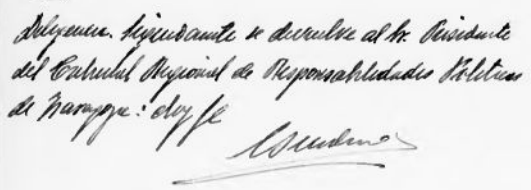 Diligencia. Seguidamente se devuelve al Sr. Presidente
del Tribunal Regional de Responsabilidades Politicas
de Zaragoza: doy fe